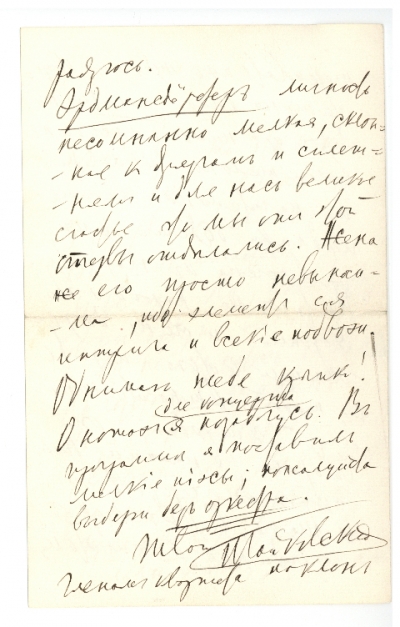 радуюсь.
Эрдмансдёрферъ личность
несомненно мелкая, склон-
-ная къ дрязгамъ и сплет-
-нямъ и для насъ великое
счастье что мы отъ этой
стервы отделались. Жена
же его просто невыноси-
-ма, ибо элементъ для
интриги и всякiе подвохи.
Обнимаю тебя крепко!
О нотахъ для концерта я позабочусь. Въ
программе я поставилъ
мелкiе пiэсы; пожалуйста
выбери безъ оркестра.
Твой П. Чайковскiй
Членамъ квартета поклонъ